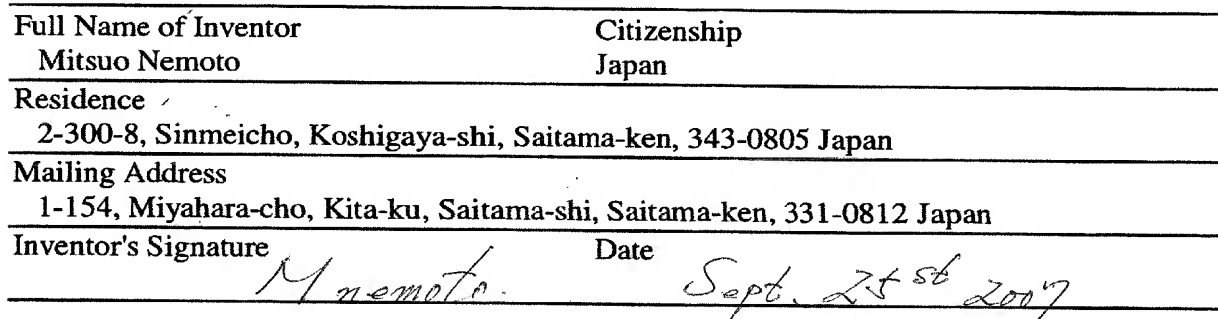 Full Name of Inventor Citizenship
Mitsuo Nemoto Japan
Residence
2-300-8, Sinmeicho, Koshigaya-shi, Saitama-ken, 343-0805 Japan
Mailing Address
1-154, Miyahara-cho, Kita-ku, Saitama-shi, Saitama-ken, 331-0812 Japan
Inventor's Signature Date
M nemoto. Sept. 25st 2007